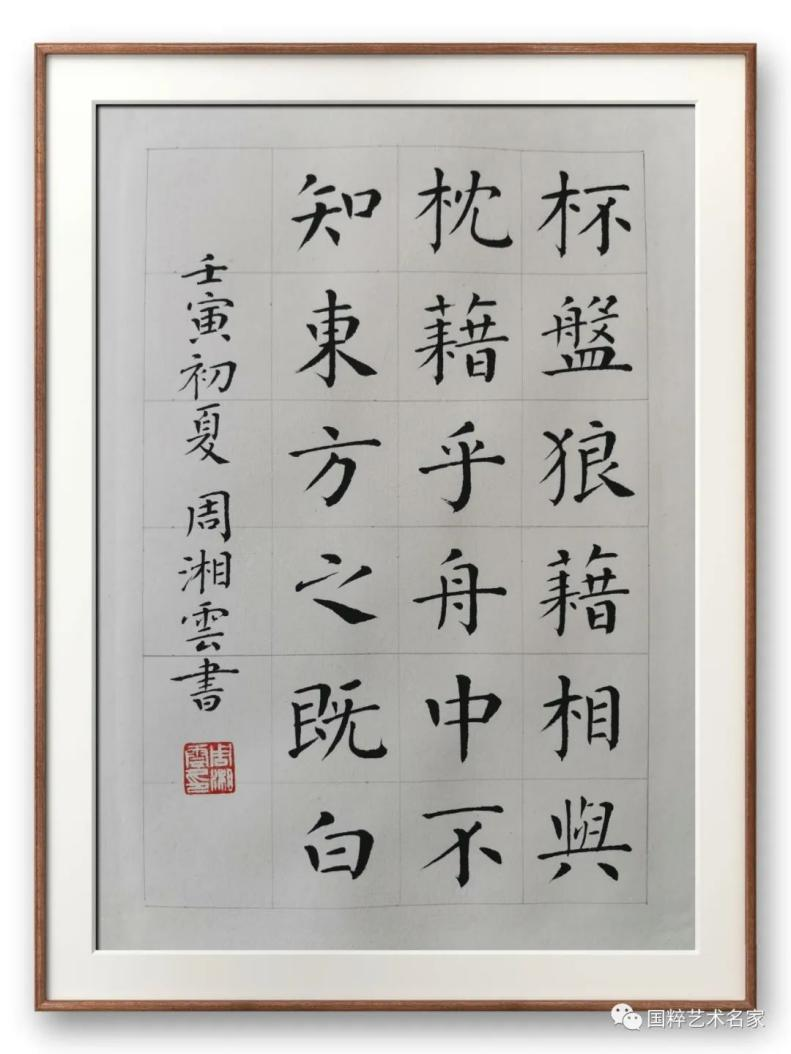 杯盤狼藉相與
枕藉乎舟中不
知東方之既白
壬寅初夏 周湘雲書
周湘雲印
国粹艺术名家